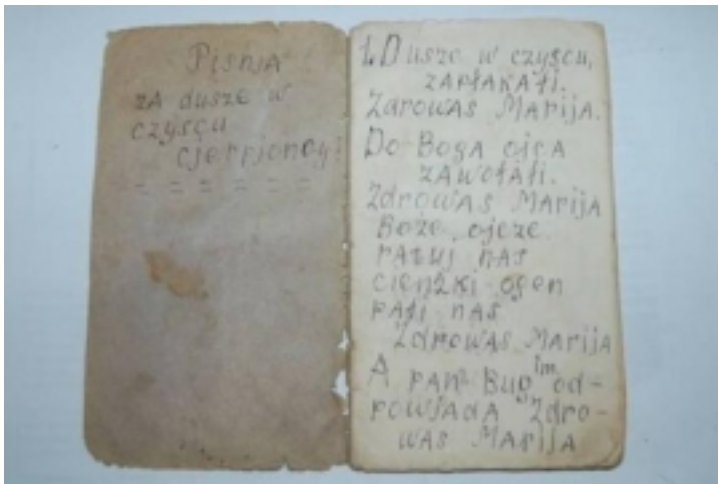 Pisnja
za dusze w
czyscu
cjerpjoncy!
- = = = = = =
1. Dusze w czyscu,
zapłakałi.
Zdrowas Marija.
Do Boga ojca
zawołałi.
Zdrowas Marija
Boże, ojcze
ratuj nas
cienżki ogen
pałi nas
Zdrowas Marija
A pan Bug im od-
powjada Zdro-
was Marija